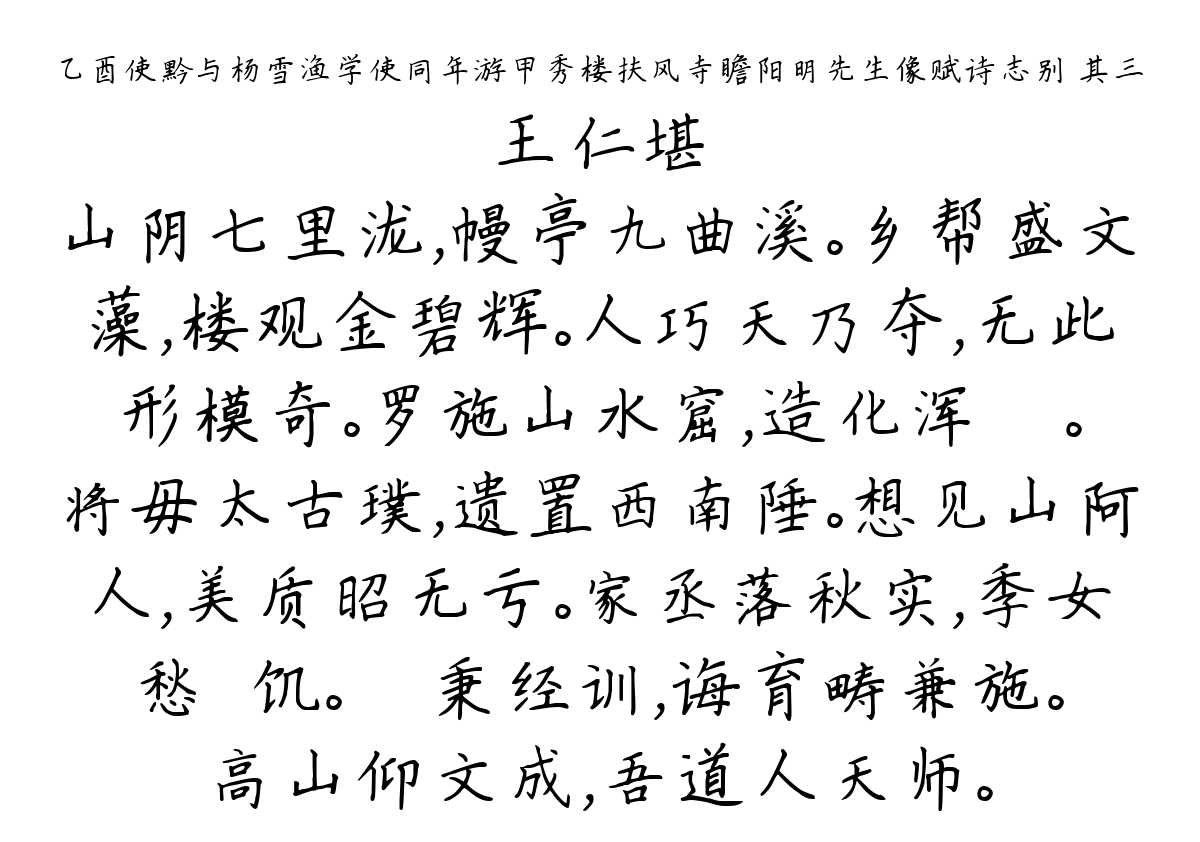 乙酉使黔与杨雪渔学使同年游甲秀楼扶风寺瞻阳明先生像赋诗志别 其三
王仁堪
山阴七里泷,幔亭九曲溪。乡帮盛文
藻,楼观金碧辉。人巧天乃夺,无此
形模奇。罗施山水窟,造化浑 。
将毋太古璞,遗置西南陲。想见山阿
人,美质昭无亏。家丞落秋实,季女
愁 饥。 秉经训,诲育畴兼施。
高山仰文成,吾道人天师。